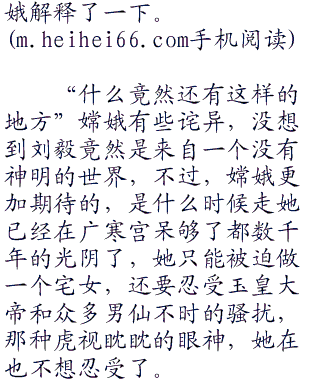 娥解释了一下。
(m.heihei66.com手机阅读)
“什么竟然还有这样的
地方”嫦娥有些诧异，没想
到刘毅竟然是来自一个没有
神明的世界，不过，嫦娥更
加期待的，是什么时候走她
已经在广寒宫呆够了都数千
年的光阴了，她只能被迫做
一个宅女，还要忍受玉皇大
帝和众多男仙不时的骚扰，
那种虎视眈眈的眼神，她在
也不想忍受了。